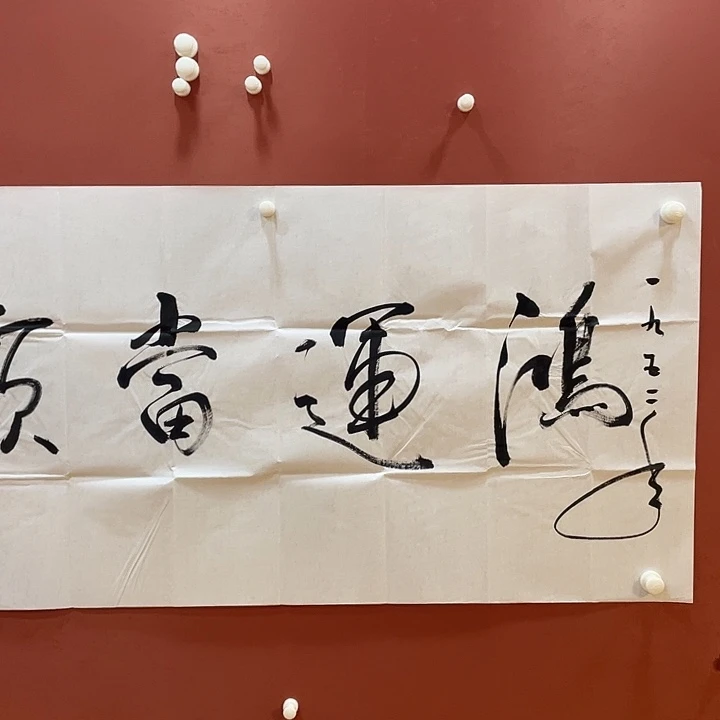 一九五二年
鴻運當頭